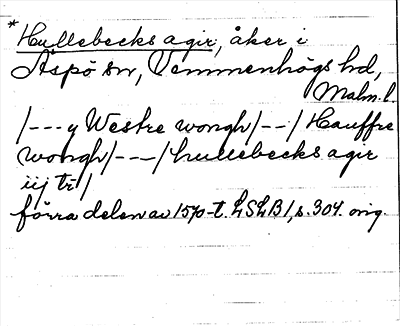 * Hullebecks agir, åker i
Äspö sn, Vemmenhögs hd,
Malm. l.
/---y Westre wongh/--/Hauffre
wongh/---/hullebecks agir
iij tr/
förra delen av 1570-t. LSLB1, s. 304. orig.